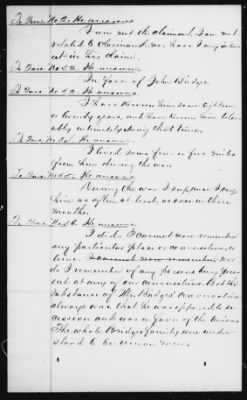 To Ques. No 2. He answers
I am not the claimant, I am not
related to claimant, nor have I any inter
est in his claim.
To Ques. No 52. He answers
In favor of John Bridge
To Ques. No 53. He answers
I have known him some eighteen
or twenty years, and have known him toler
ably intimately during that time.
To Ques. No 54. He answers
I lived some four or five miles
from him during the war.
To Ques. No 55. He answers
During the war I suppose I saw
him as often at least, as once in three
months.
To Ques. No 56. He answers
I did. I cannot now remember
any particular place or conversation or
time. I cannot now remember nor
do I remember of any persons being pres
ent at any of our conversations. But the
substance of Mr. Bridges' conversations
always was that he was opposed to se
cession and was in favor of the Union.
The whole Bridges family were under
stood to be union men.